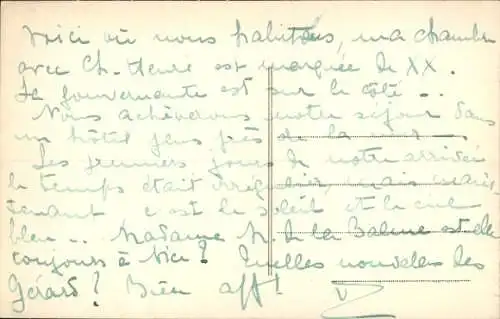 Voici où nous habitons, ma chambre
avec Ch-Henre est marquée de XX.
La gouvernante est sur le côté...
Nous achèverons notre séjour dans
un hôtel plus près de la mer.
Les premiers jours de notre arrivée
le temps était irrégulier, mais main
tenant c'est le soleil et le ciel
bleu... Madame M. de la Balme est-elle
toujours à Nice? Quelles nouvelles des
Gérard? Bien aff!